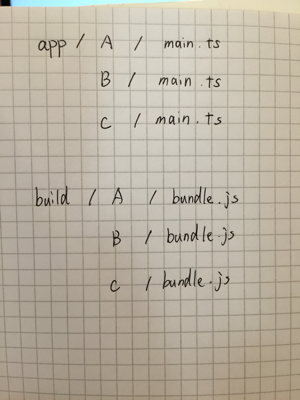 app / A / main.ts
B / main.ts
C / main.ts
build / A / bundle.js
B / bundle.js
C / bundle.js